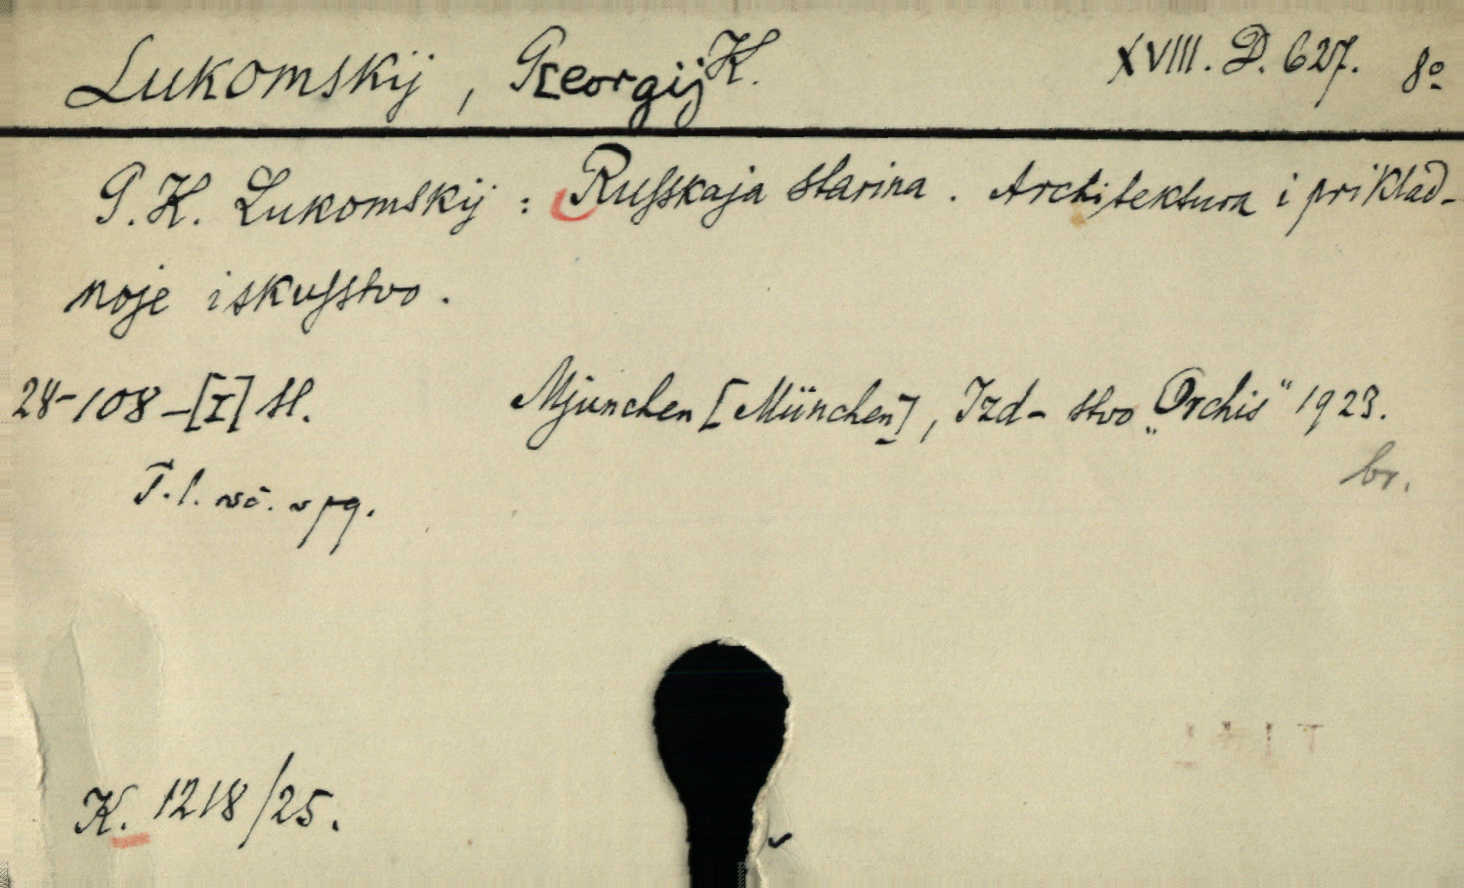 Lukomskij, Georgij K. XVIII. D. 627. 8º
G. K. Lukomskij : Russkaja starina. Architektura i priklad-
noje iskusstvo.
28-108-[I] sl. Mjunchen [München], Izd-stvo „Orchis“ 1923.
br.
T. l. vč. v pg.
K. 1218/25.